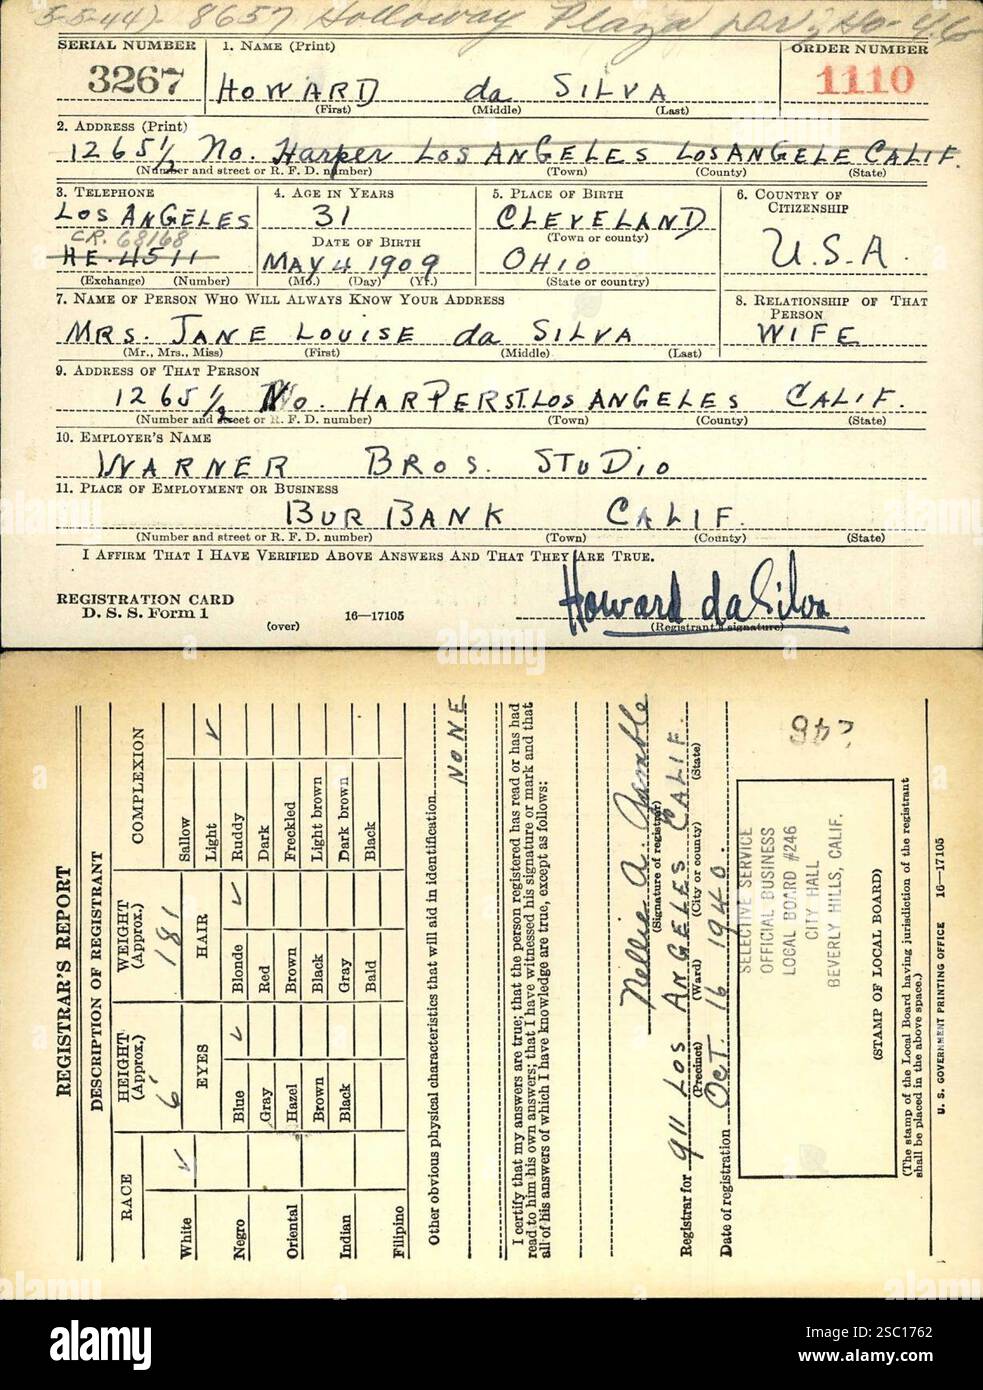 5-5-44) 8657 Holloway Plaza Dr., Ho-46
SERIAL NUMBER 1. NAME (Print) ORDER NUMBER
3267 HOWARD da SILVA 1110
(First) (Middle) (Last)
2. ADDRESS (Print)
1265 1/2 No. Harper LOS ANGELES LOS ANGELE CALIF.
(Number and street or R. F. D. number) (Town) (County) (State)
3. TELEPHONE 4. AGE IN YEARS 5. PLACE OF BIRTH 6. COUNTRY OF CITIZENSHIP
LOS ANGELES 31 CLEVELAND
(Town or county)
CR. 68168 DATE OF BIRTH U.S.A.
HE-4511 MAY 4 1909 OHIO
(Exchange) (Number) (Mo.) (Day) (Yr.) (State or country)
7. NAME OF PERSON WHO WILL ALWAYS KNOW YOUR ADDRESS 8. RELATIONSHIP OF THAT PERSON
MRS. JANE LOUISE da SILVA WIFE
(Mr., Mrs., Miss) (First) (Middle) (Last)
9. ADDRESS OF THAT PERSON
1265 1/2 No. HARPER ST. LOS ANGELES CALIF.
(Number and street or R. F. D. number) (Town) (County) (State)
10. EMPLOYER'S NAME
WARNER BROS. STUDIO
11. PLACE OF EMPLOYMENT OR BUSINESS
BURBANK CALIF.
(Number and street or R. F. D. number) (Town) (County) (State)
I AFFIRM THAT I HAVE VERIFIED ABOVE ANSWERS AND THAT THEY ARE TRUE.
REGISTRATION CARD
D. S. S. Form 1 16—17105 Howard da Silva
(over) (Registrant's signature)
REGISTRAR'S REPORT
DESCRIPTION OF REGISTRANT
RACE HEIGHT (Approx.) WEIGHT (Approx.) COMPLEXION
6' 181
EYES HAIR
White ✓ Blue ✓ Blonde ✓ Sallow
Light ✓
Negro Gray Red Ruddy
Oriental Hazel Brown Dark
Indian Brown Black Freckled
Filipino Black Gray Light brown
Bald Dark brown
Black
Other obvious physical characteristics that will aid in identification
NONE
I certify that my answers are true; that the person registered has read or has had
read to him his own answers; that I have witnessed his signature or mark and that
all of his answers of which I have knowledge are true, except as follows:
Nellie A. Gamble
(Signature of registrar)
Registrar for 911 LOS ANGELES CALIF.
(Precinct) (Ward) (City or county) (State)
Date of registration OCT. 16 1940.
SELECTIVE SERVICE
OFFICIAL BUSINESS
LOCAL BOARD #246
CITY HALL
BEVERLY HILLS, CALIF.
(STAMP OF LOCAL BOARD)
(The stamp of the Local Board having jurisdiction of the registrant
shall be placed in the above space.)
U. S. GOVERNMENT PRINTING OFFICE 16—17105
alamy
Image ID: 2SC1762
www.alamy.com